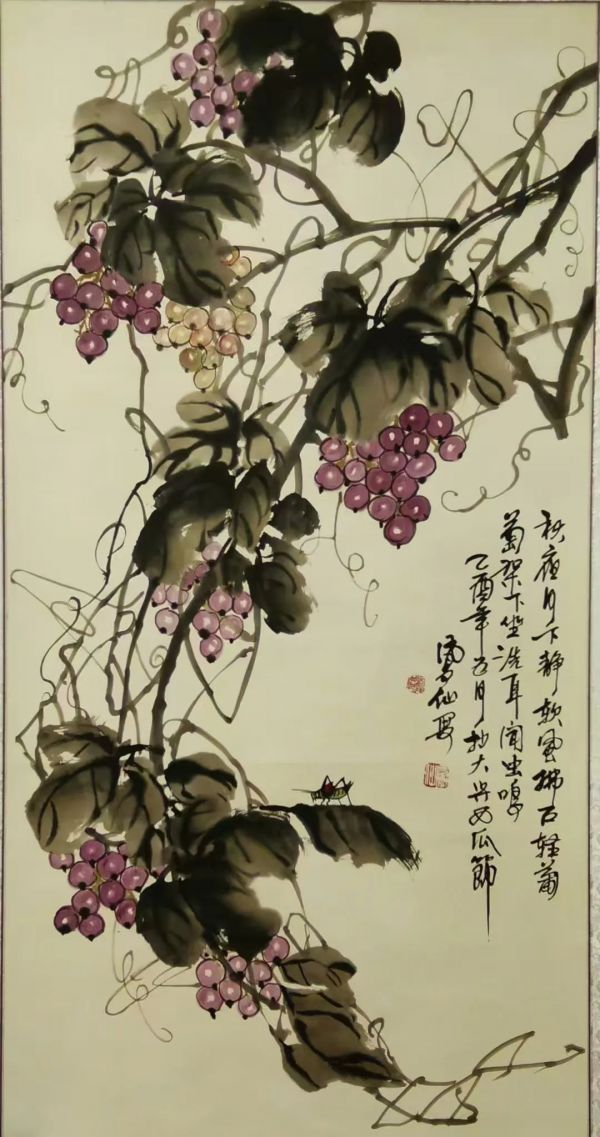 秋夜月下静软风拂面轻葡
萄架下坐洗耳闻虫鸣
乙酉年五月于大兴西瓜節
仙